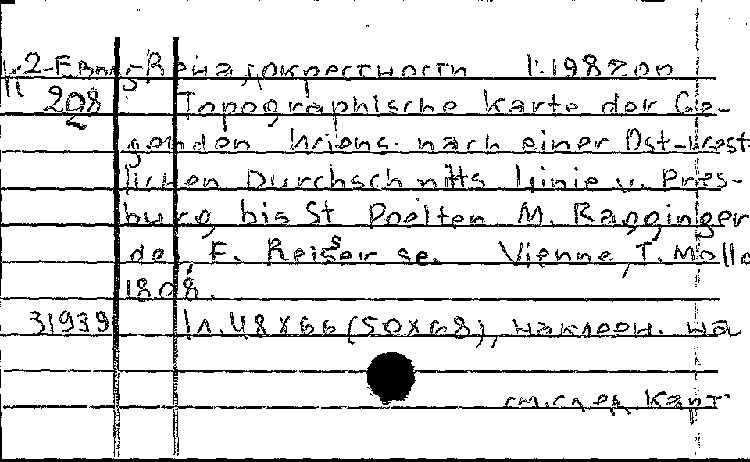 К 2-Евр.5-Вена, окрестности 1:198200
208 Topographische Karte der Ge-
genden Wiens nach einer Ost-west-
lichen Durchschnitts linie v. Pres-
burg bis St Poelten M. Ragginger
del, F. Reisser sc. Vienne, T. Mollo
1808.
31939 1л. 48х66 (50х68), наклеен. на
см. след. карт.